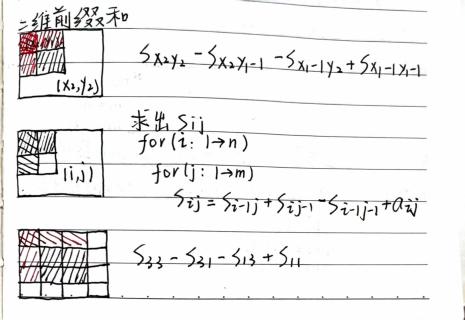 二维前缀和
(x₂,y₂)
Sx₂y₂ - Sx₂y₁-1 - Sx₁-1y₂ + Sx₁-1y₁-1
求出 Sij
for(i: 1→n)
for(j: 1→m)
(i,j)
Sij = Si-1j + Sij-1 - Si-1j-1 + aij
S33 - S31 - S13 + S11